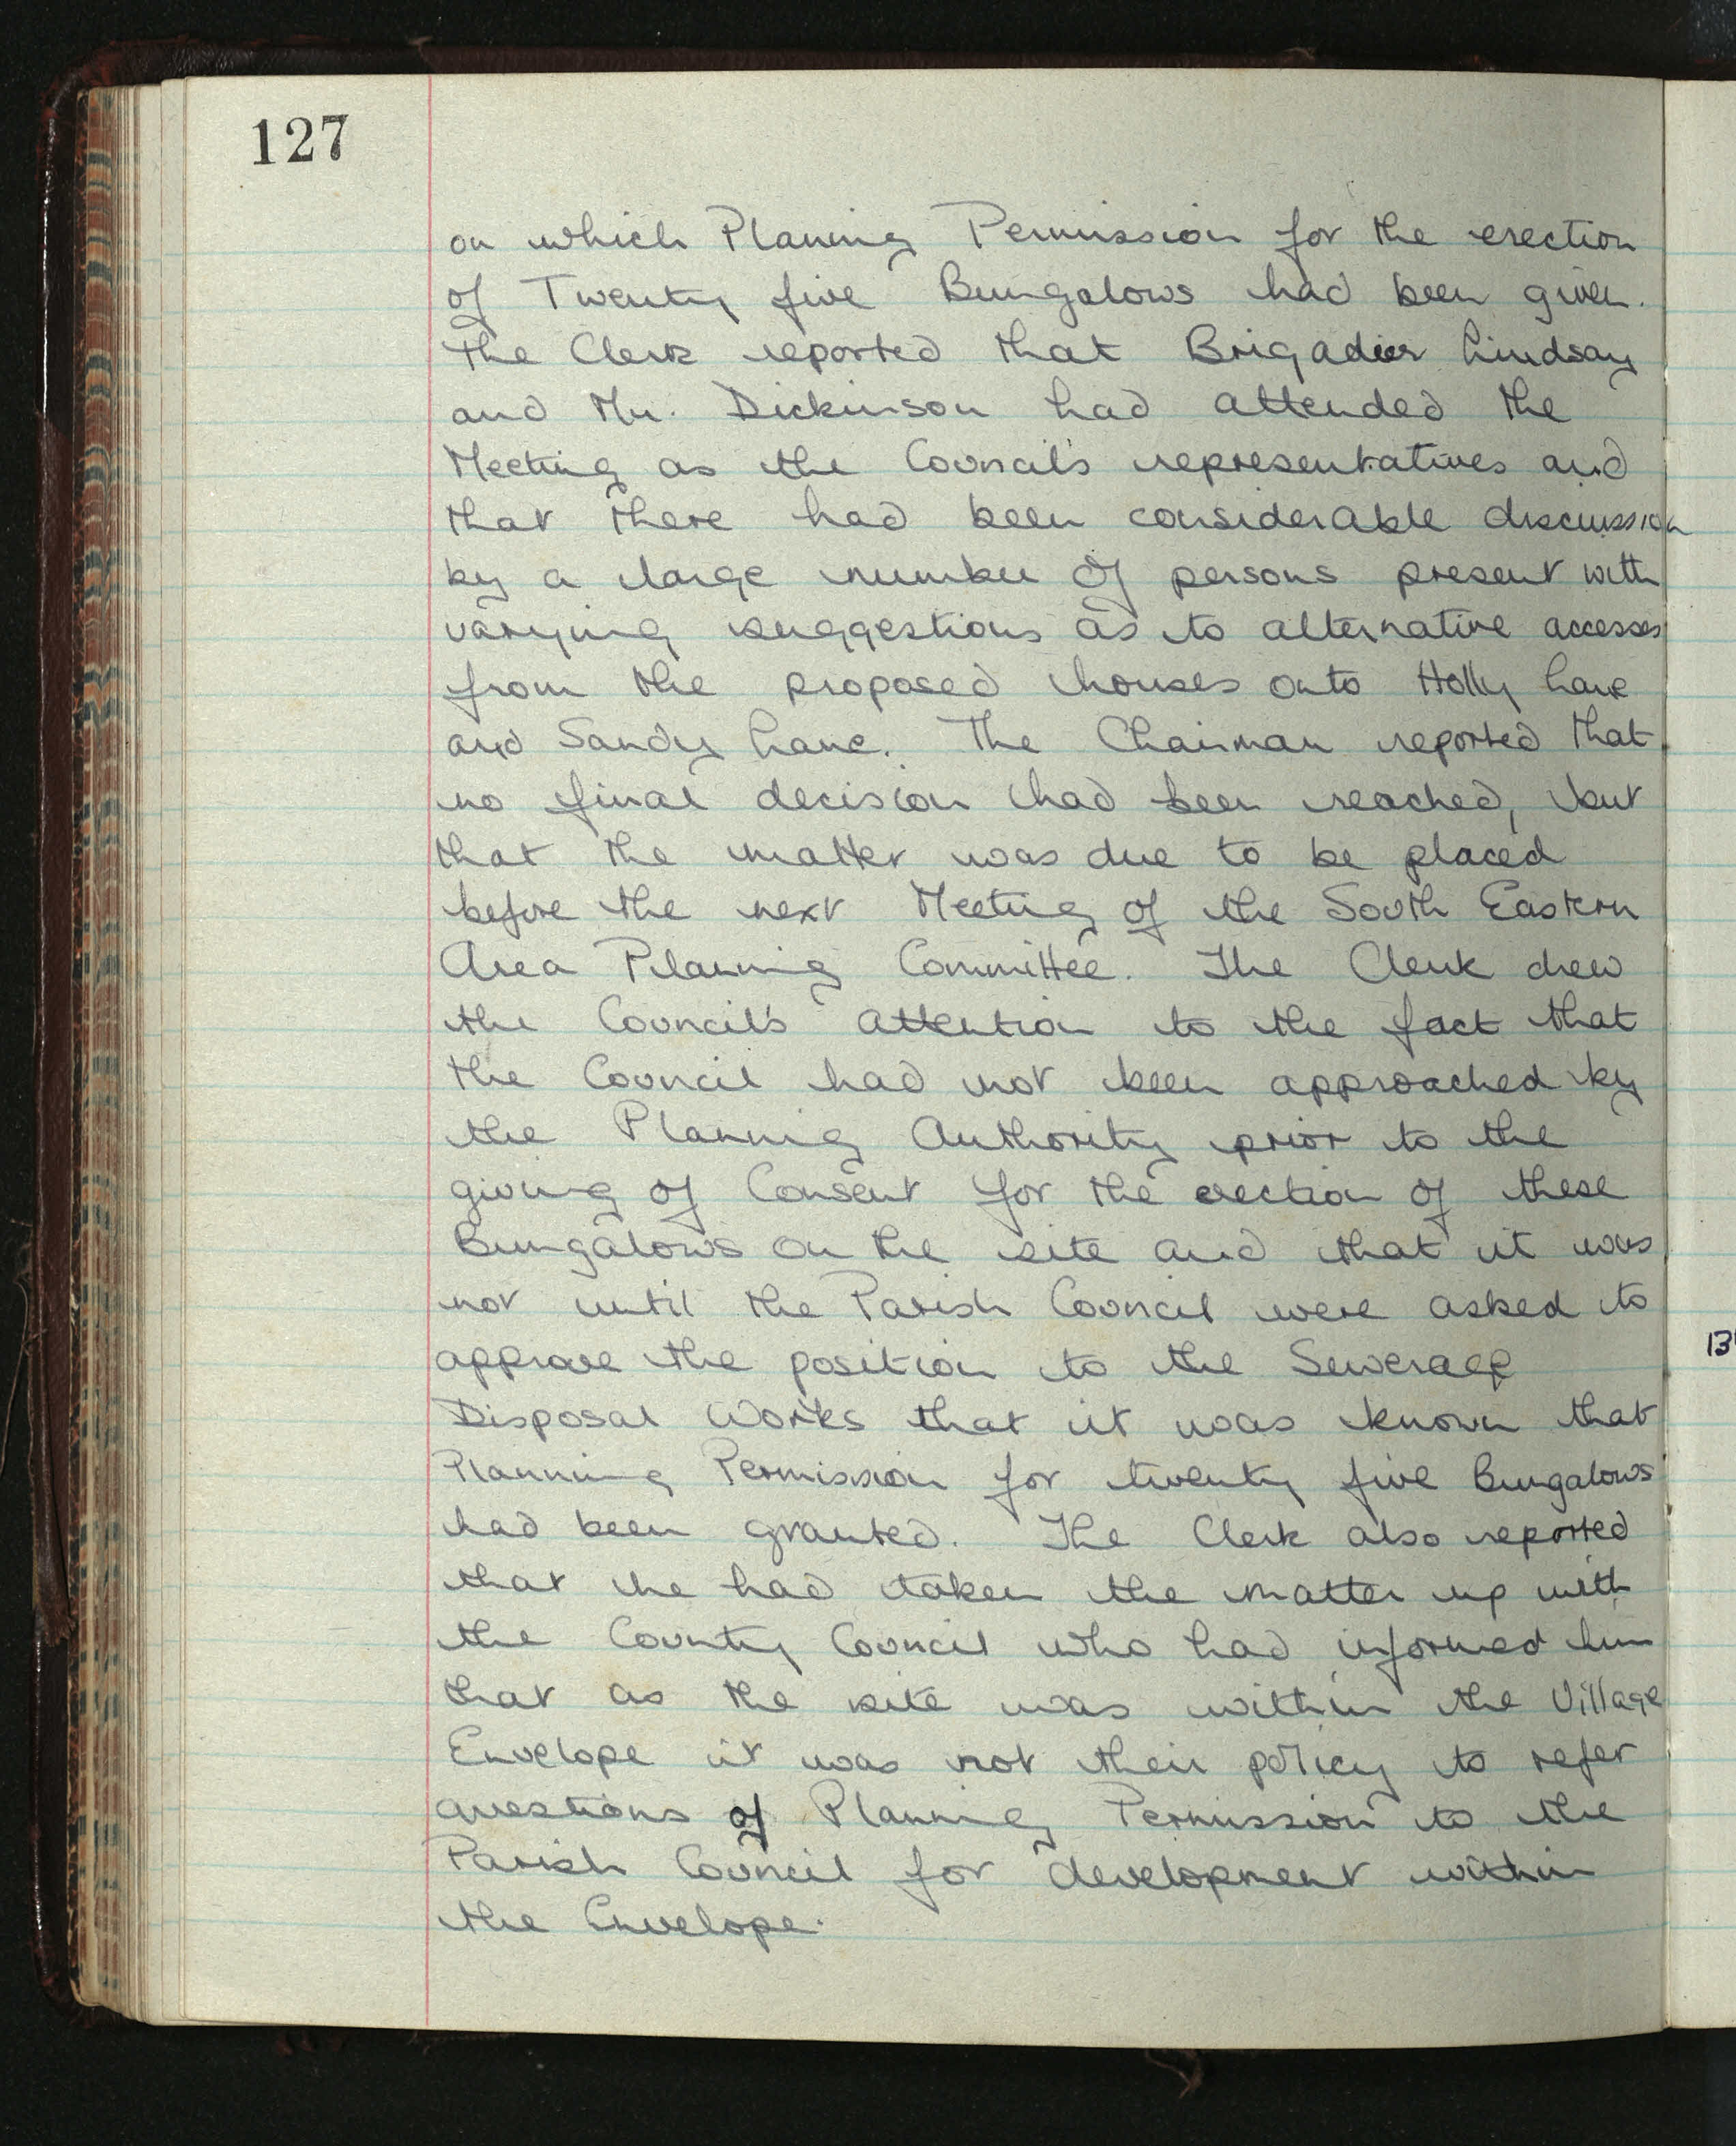 127
on which Planning Permission for the erection
of Twenty five Bungalows had been given.
The Clerk reported that Brigadier Lindsay
and Mr. Dickinson had attended the
Meeting as the Council's representatives and
that there had been considerable discussion
by a large number of persons present with
varying suggestions as to alternative accesses
from the proposed houses onto Holly Lane
and Sandy Lane. The Chairman reported that
no final decision had been reached, but
that the matter was due to be placed
before the next Meeting of the South Eastern
Area Planning Committee. The Clerk drew
the Council's attention to the fact that
the Council had not been approached by
the Planning Authority prior to the
giving of Consent for the erection of these
Bungalows on the site and that it was
not until the Parish Council were asked to
approve the position to the Sewerage
Disposal Works that it was known that
Planning Permission for twenty five Bungalows
had been granted. The Clerk also reported
that he had taken the matter up with
the County Council who had informed him
that as the site was within the Village
Envelope it was not their policy to refer
questions of Planning Permission to the
Parish Council for development within
the Envelope.